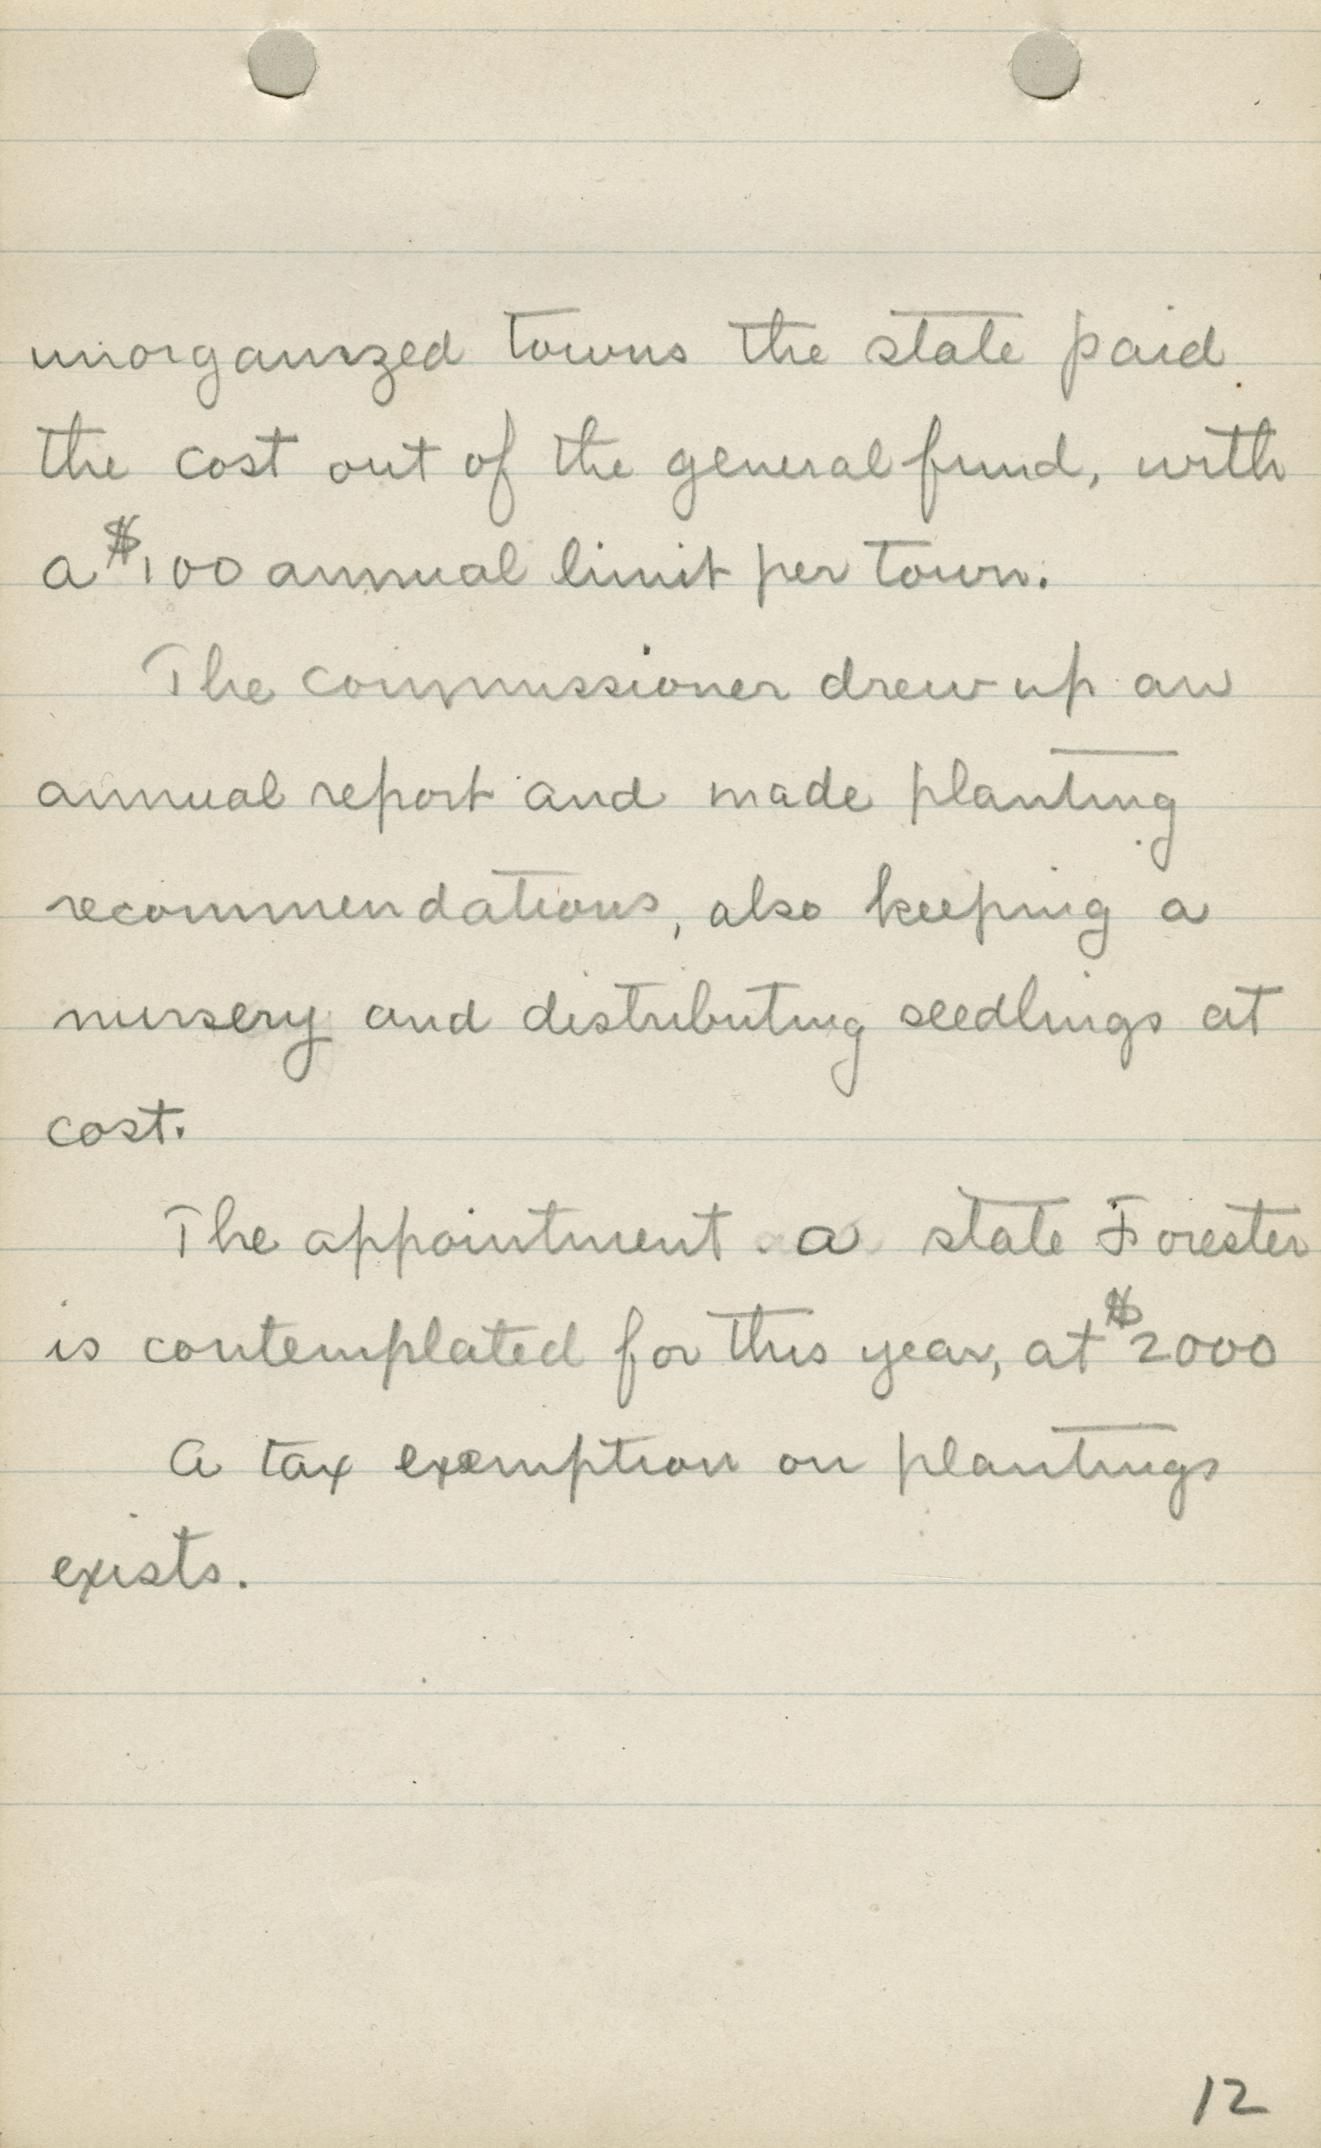 unorganized towns the state paid
the cost out of the general fund, with
a $100 annual limit per town.
The commissioner drew up an
annual report and made planting
recommendations, also keeping a
nursery and distributing seedlings at
cost.
The appointment a state Forester
is contemplated for this year, at $2000
A tax exemption on plantings
exists.
12